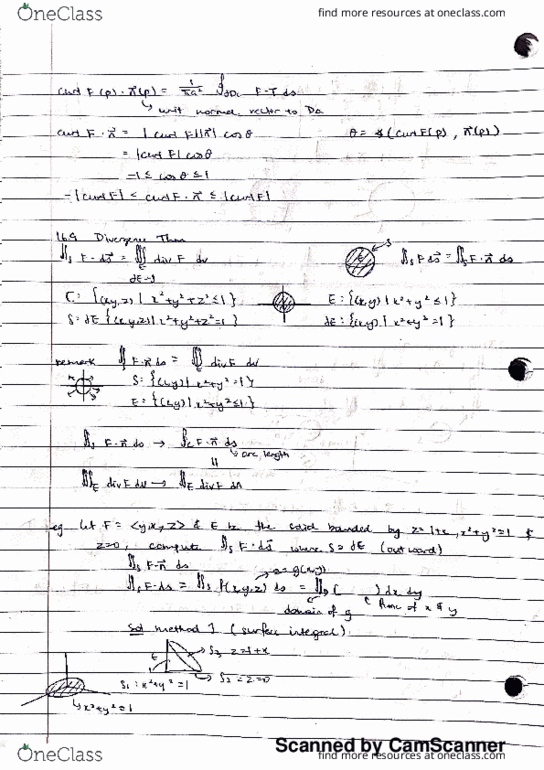 OneClass find more resources at oneclass.com
curl F(p) · n⃗(p) = 1/πa² ∮∂Da F·T ds
↳ unit normal vector to Da
curl F · n⃗ = |curl F||n⃗| cosθ θ = ∡(curl F(p), n⃗(p))
= |curl F| cosθ
-1 ≤ cosθ ≤ 1
-|curl F| ≤ curl F · n⃗ ≤ |curl F|
16.9 Divergence Thm
∬s F · ds⃗ = ∭E div F dv ∬s F ds⃗ = ∬s F · n⃗ ds
E: {(x,y,z) | x²+y²+z² ≤ 1} E: {(x,y) | x²+y² ≤ 1}
S: ∂E {(x,y,z) | x²+y²+z² = 1} ∂E: {(x,y) | x²+y² = 1}
remark ∬s F·n⃗ ds = ∭ div F dv
S: {(x,y) | x²+y² = 1}
E: {(x,y) | x²+y² ≤ 1}
∬s F·n⃗ ds → ∫c F·n⃗ ds
↳ arc length
∭E div F dv → ∬E div F dA
eg. let F = <y, x, z> & E be the solid bounded by z = 1+x, x²+y² = 1 &
z=0, compute ∬s F · ds⃗ where S = ∂E (outward)
∬s F·n⃗ ds
z = g(x,y)
∬s F·ds = ∬s f(x,y,z) ds = ∬D ( ) dx dy
domain of g func of x & y
Sol method 1 (surface integral)
S3 z=1+x
S1: x²+y² = 1 S2 = z=0
↳ x²+y² = 1
Scanned by CamScanner
OneClass find more resources at oneclass.com